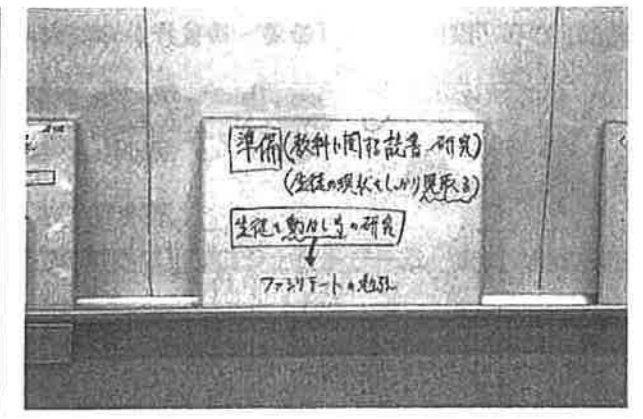 準備(教科に関する読書・研究)
(生徒の現状をしっかり見取る)
生徒を動かし方の研究
ファシリテートの勉強